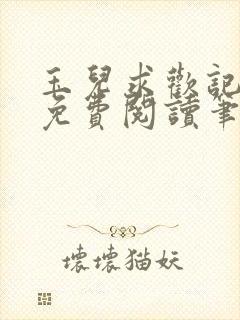 玉兒求歡記
免費閱讀筆
壞壞猫妖